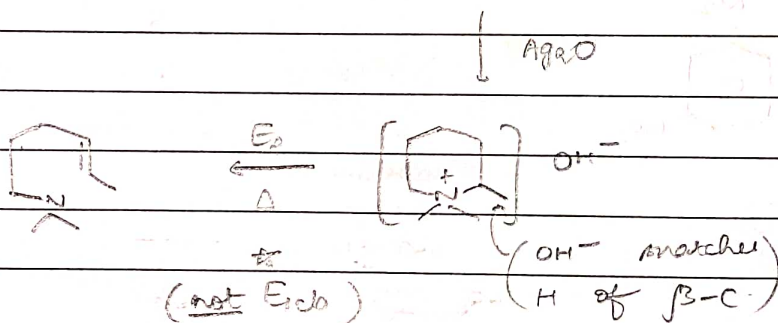 Ag2O
E2
Δ
N
+
N
OH⁻
☆
(not E1cb)
(OH⁻ snatches
H of β-C.)